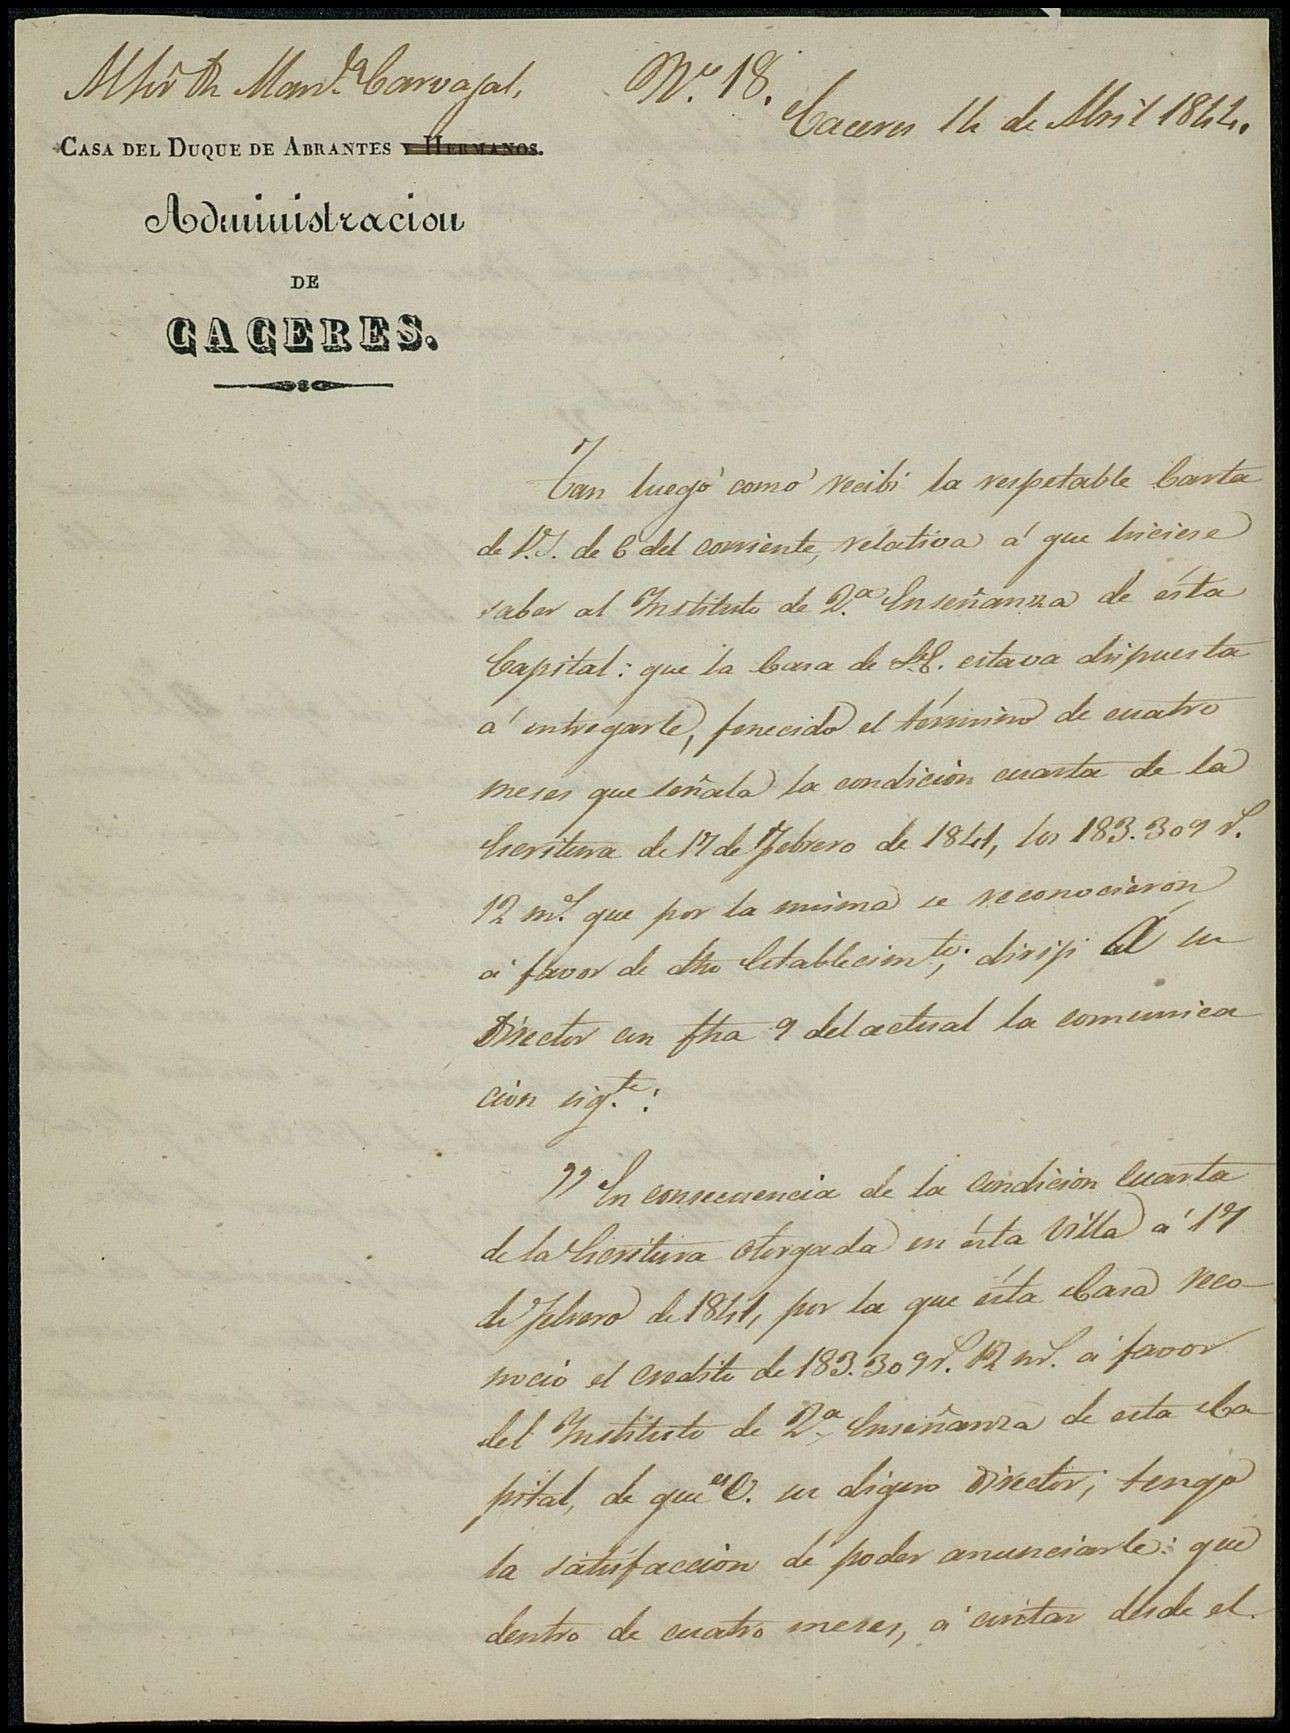 Al Sr. Dn Man.l Carvajal,
N.º 18.
Caceres 14 de Abril 1844.
CASA DEL DUQUE DE ABRANTES Y HERMANOS.
Administracion
DE
CACERES.
Tan luego como recibi la respetable Carta
de V.S. de 6 del corriente, relativa á que hiciese
saber al Instituto de 2.ª Enseñanza de ésta
Capital: que la Casa de S.E. estava dispuesta
á entregarle, fenecido el término de cuatro
meses que señala la condición cuarta de la
Escritura de 17 de Febrero de 1841, los 183.309 r.s
12 m.s que por la misma se reconocieron
á favor de dho Establecim.to; dirijí al su
Director con fha 9 del actual la comunica
cion sig.te:
"En consecuencia de la condicion cuarta
de la Escritura otorgada en ésta Villa á 17
de Febrero de 1841, por la que ésta Casa reco-
noció el credito de 183.309 r.s 12 m.s á favor
del Instituto de 2.ª Enseñanza de esta Ca
pital, de que es V. su digno Director; tengo
la satisfaccion de poder anunciarle: que
dentro de cuatro meses, á contar desde el